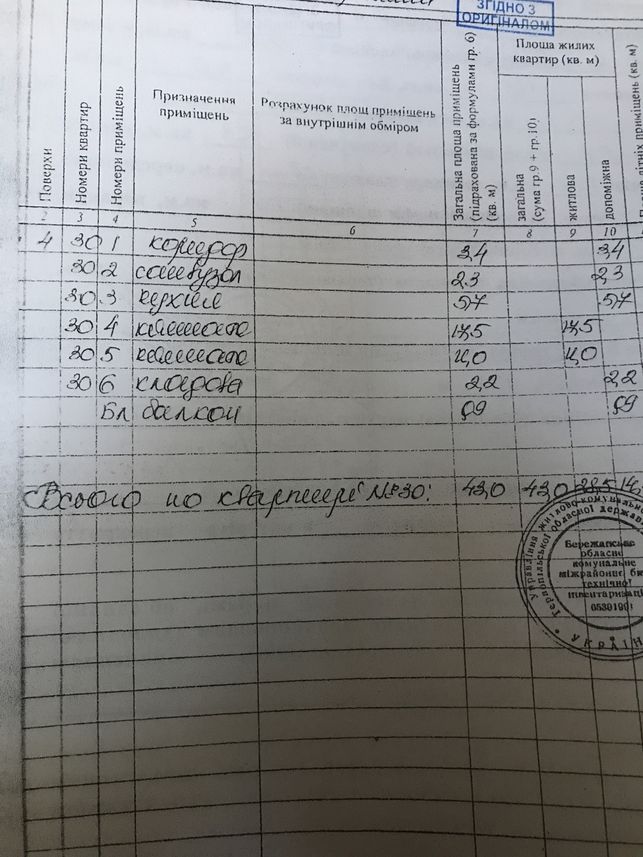 ЗГІДНО З
ОРИГІНАЛОМ
Поверхи
Номери квартир
Номери приміщень
Призначення
приміщень
Розрахунок площ приміщень
за внутрішнім обміром
Загальна площа приміщень
(підрахована за формулами гр. 6)
(кв. м)
Площа жилих
квартир (кв. м)
загальна
(сума гр.9 + гр.10)
житлова
допоміжна
літніх приміщень (кв. м)
2 3 4 5 6 7 8 9 10
4 30 1 коридор 3,4 3,4
30 2 санвузол 2,3 2,3
30 3 кухня 5,7 5,7
30 4 кімната 17,5 17,5
30 5 кімната 11,0 11,0
30 6 кладова 2,2 2,2
Бл балкон 0,9 0,9
Всього по квартирі №30: 43,0 43,0 28,5 14,
Управління житлово-комунального
Тернопільської обласної держав
Бережанське
обласне
комунальне
міжрайонне бю
технічної
інвентаризації
УКРАЇН